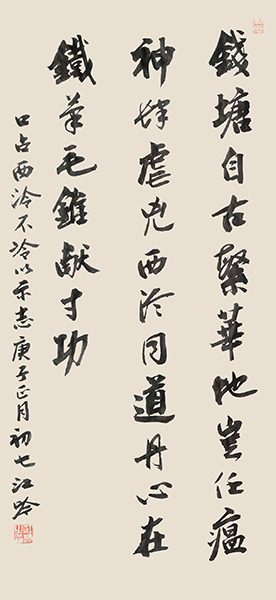 錢塘自古繁華地豈任瘟
神肆虐兇西泠同道丹心在
鐵筆毛錐献寸功
口占西泠不冷以示志庚子正月初七江吟